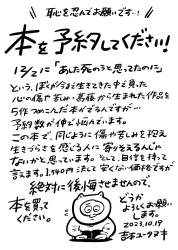 恥を忍んでお願いです…!
本を予約してください!
12/2に「あした死のうと思ってたのに」
という、ぼくが今まで生きてきた中で負った
心の傷や苦み・葛藤から生まれた作品を
5作つめこんだ本がでるんですが…
予約数が伸び悩んでいます。
この本で、同じように傷や苦しみを抱え
生きづらさを感じる人に寄りそえるんじゃ
ないかと思っています。そして、自信を持って
言えます。1,540円決して安くない価格ですが
絶対に後悔させませんので、
本を買って
ください。
どうか
よろしく
お願い
します。
2023.10.19